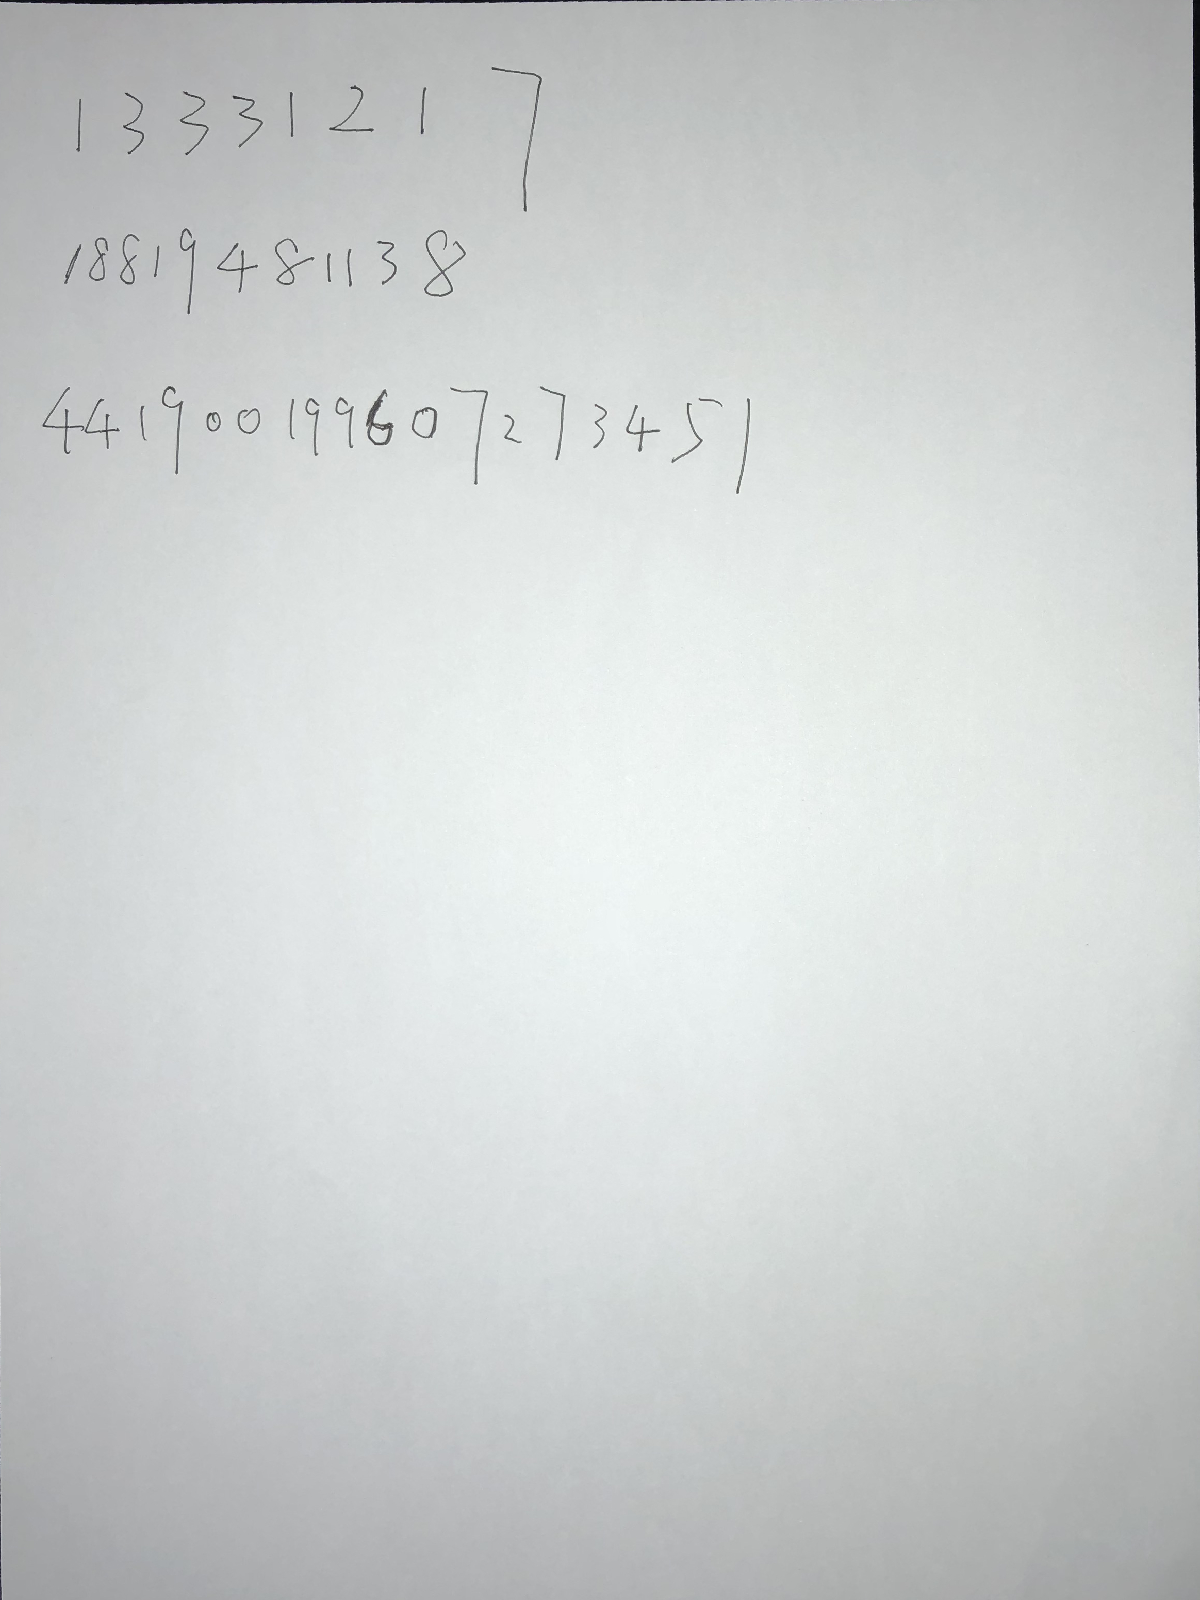 13331217
18819481138
441900199607273451